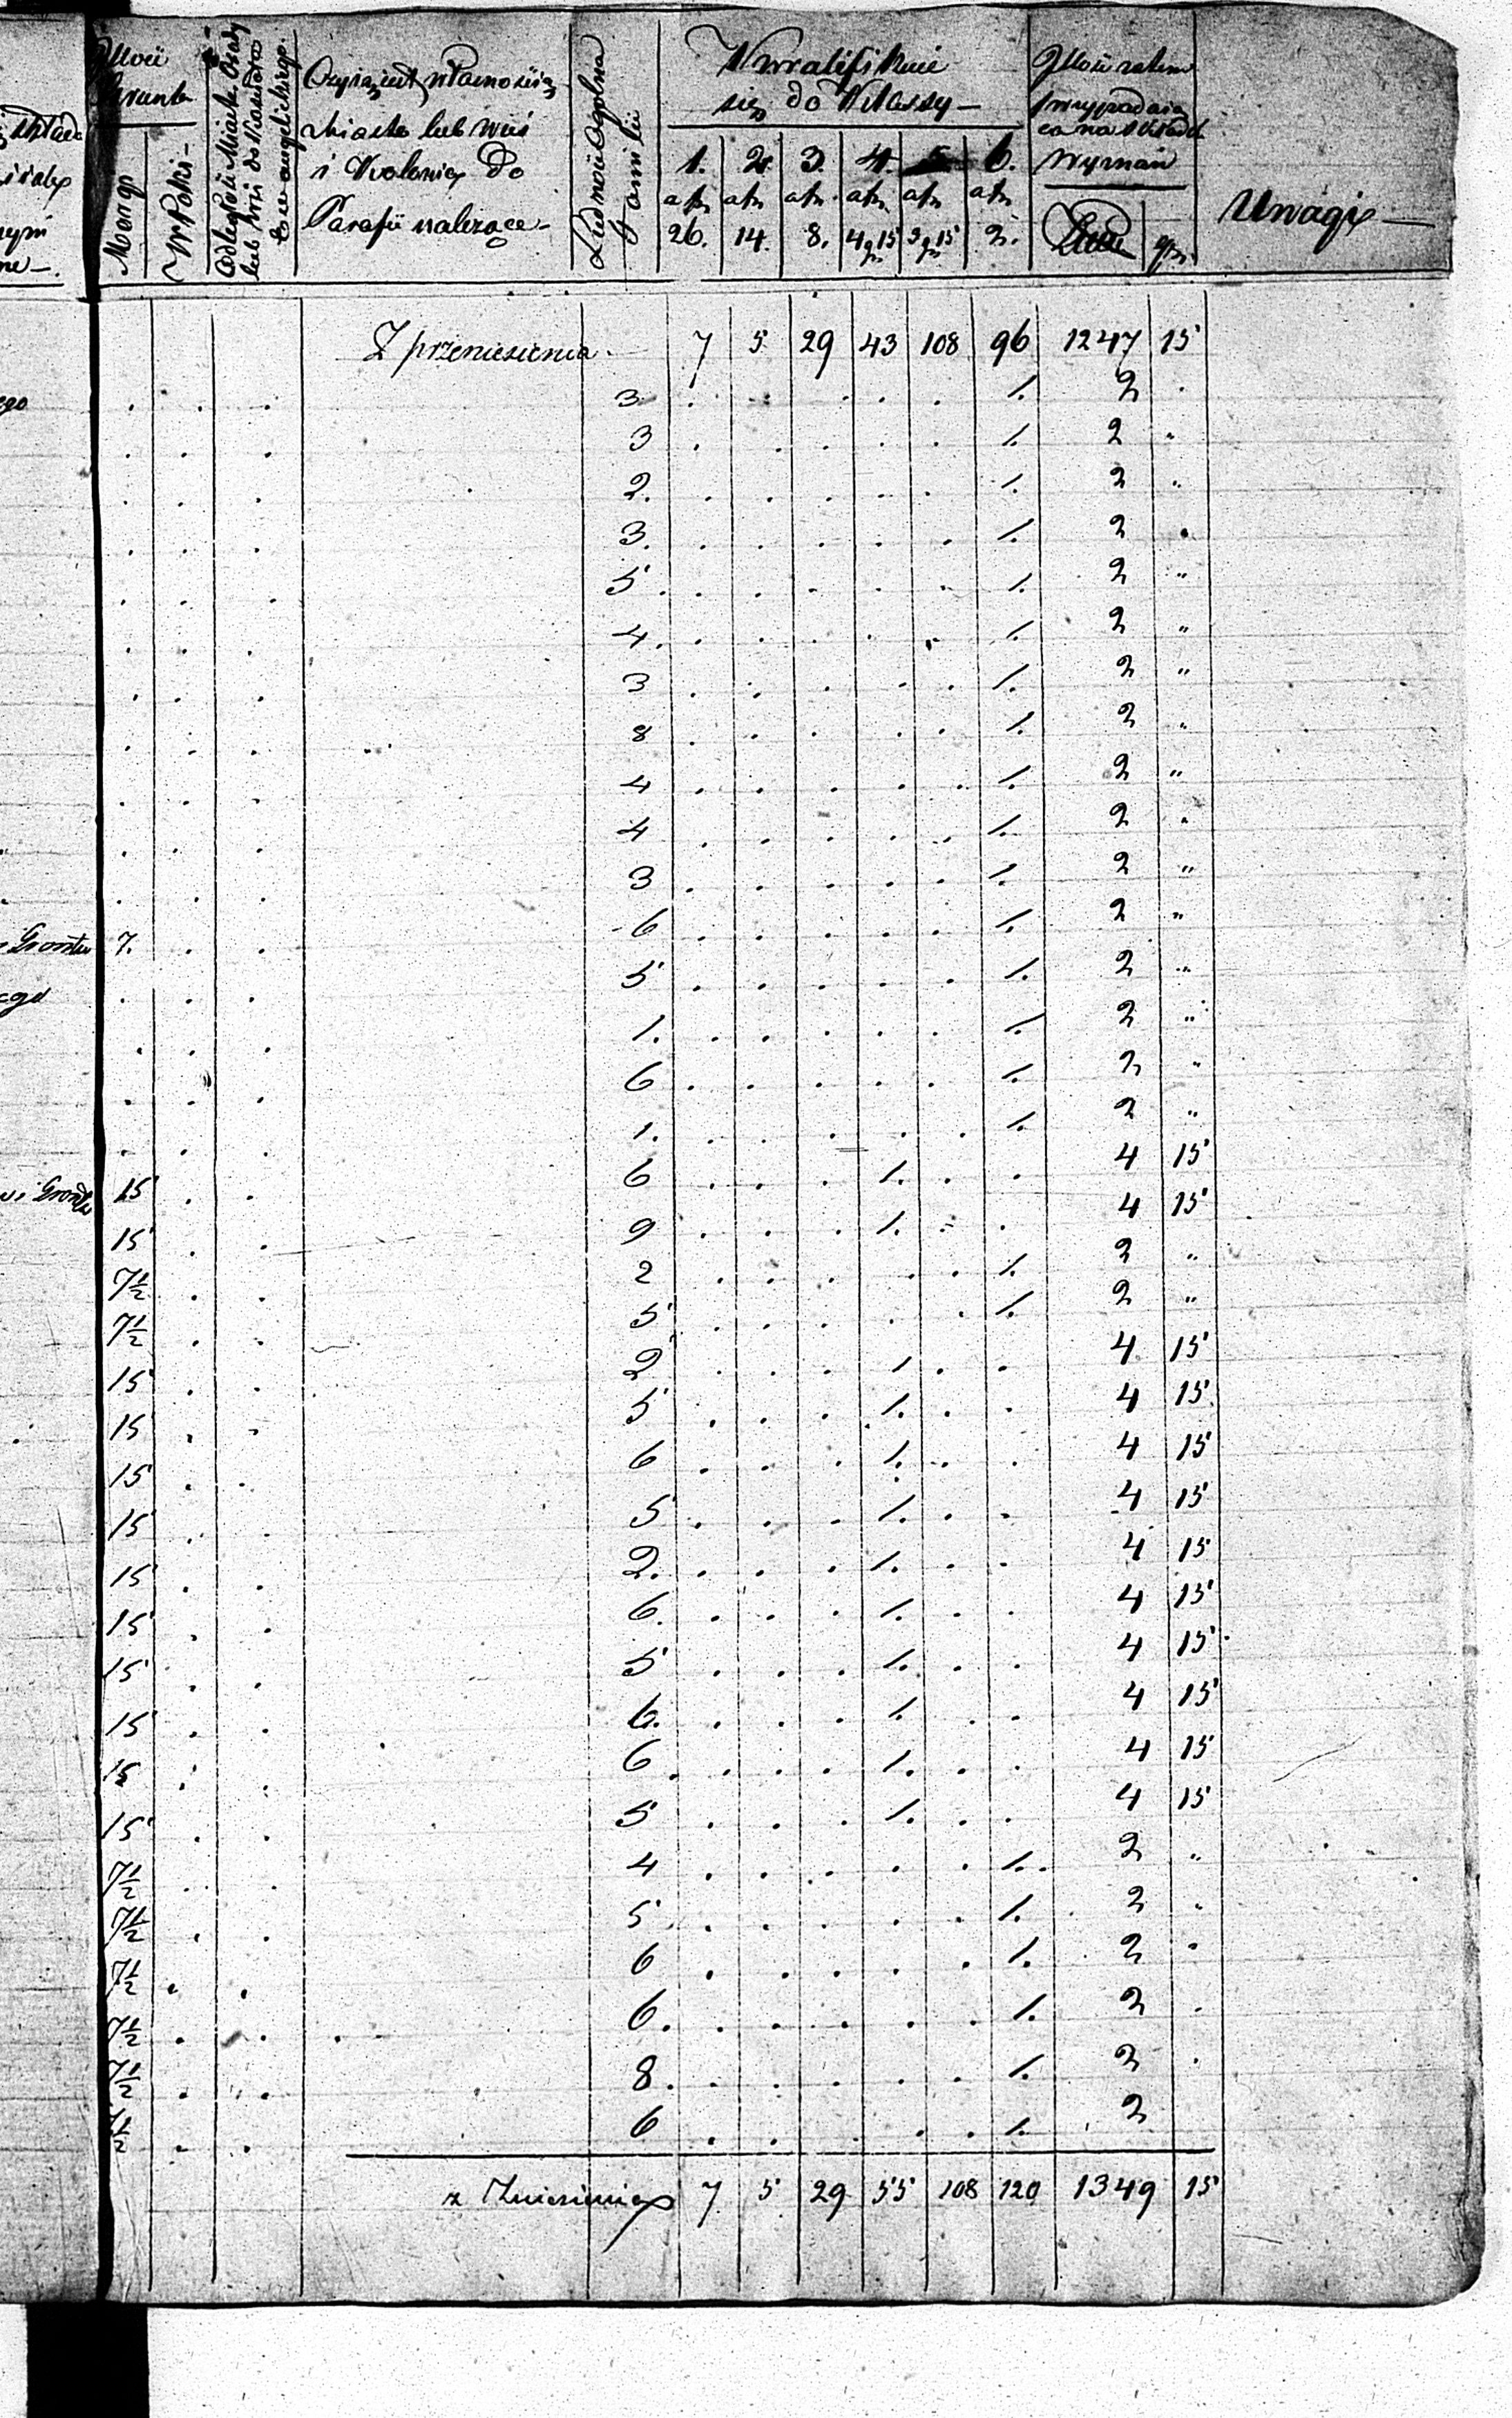 Morgi
Czyią jest własnością
Miasto lub wieś
i Kolonie do
Parafii należące -
Ludność Ogólna
Familii
Kwalifikuie
się do Klassy -
1. 2. 3. 4. 5 6.
26. 14. 8. 4 15 3 15 2.
Uwagi
Z przeniesienia 7 5 29 43 108 96 1247 15
3 1. 2
3 1. 2 "
2. 1. 2 "
3. 1. 2
5 1. 2 "
4. 1. 2 "
3 1. 2 "
8 1. 2 "
4 1. 2 "
4 1. 2 "
3 1. 2 "
Grontu 7. 6 1. 2 "
5 1. 2 "
1. 1. 2 "
6 1. 2 "
1. 1. 2 "
15 6 1. 4 15
15 9 1. 4 15
7½ 2 1. 2 "
7½ 5 1. 2 "
15 2 1 4 15
15 5 1. 4 15
15 6 1. 4 15
15 5 1. 4 15
15 2. 1. 4 15
15 6. 1. 4 15
15 5 1. 4 15
15 6. 1. 4 15
15 6 1. 4 15
15 5 1. 4 15
7½ 4 1. 2 "
7½ 5 1. 2 "
7½ 6 1. 2 "
7½ 6. 1. 2
7½ 8. 1. 2
7½ 6 1. 2
7 5 29 55 108 120 1349 15